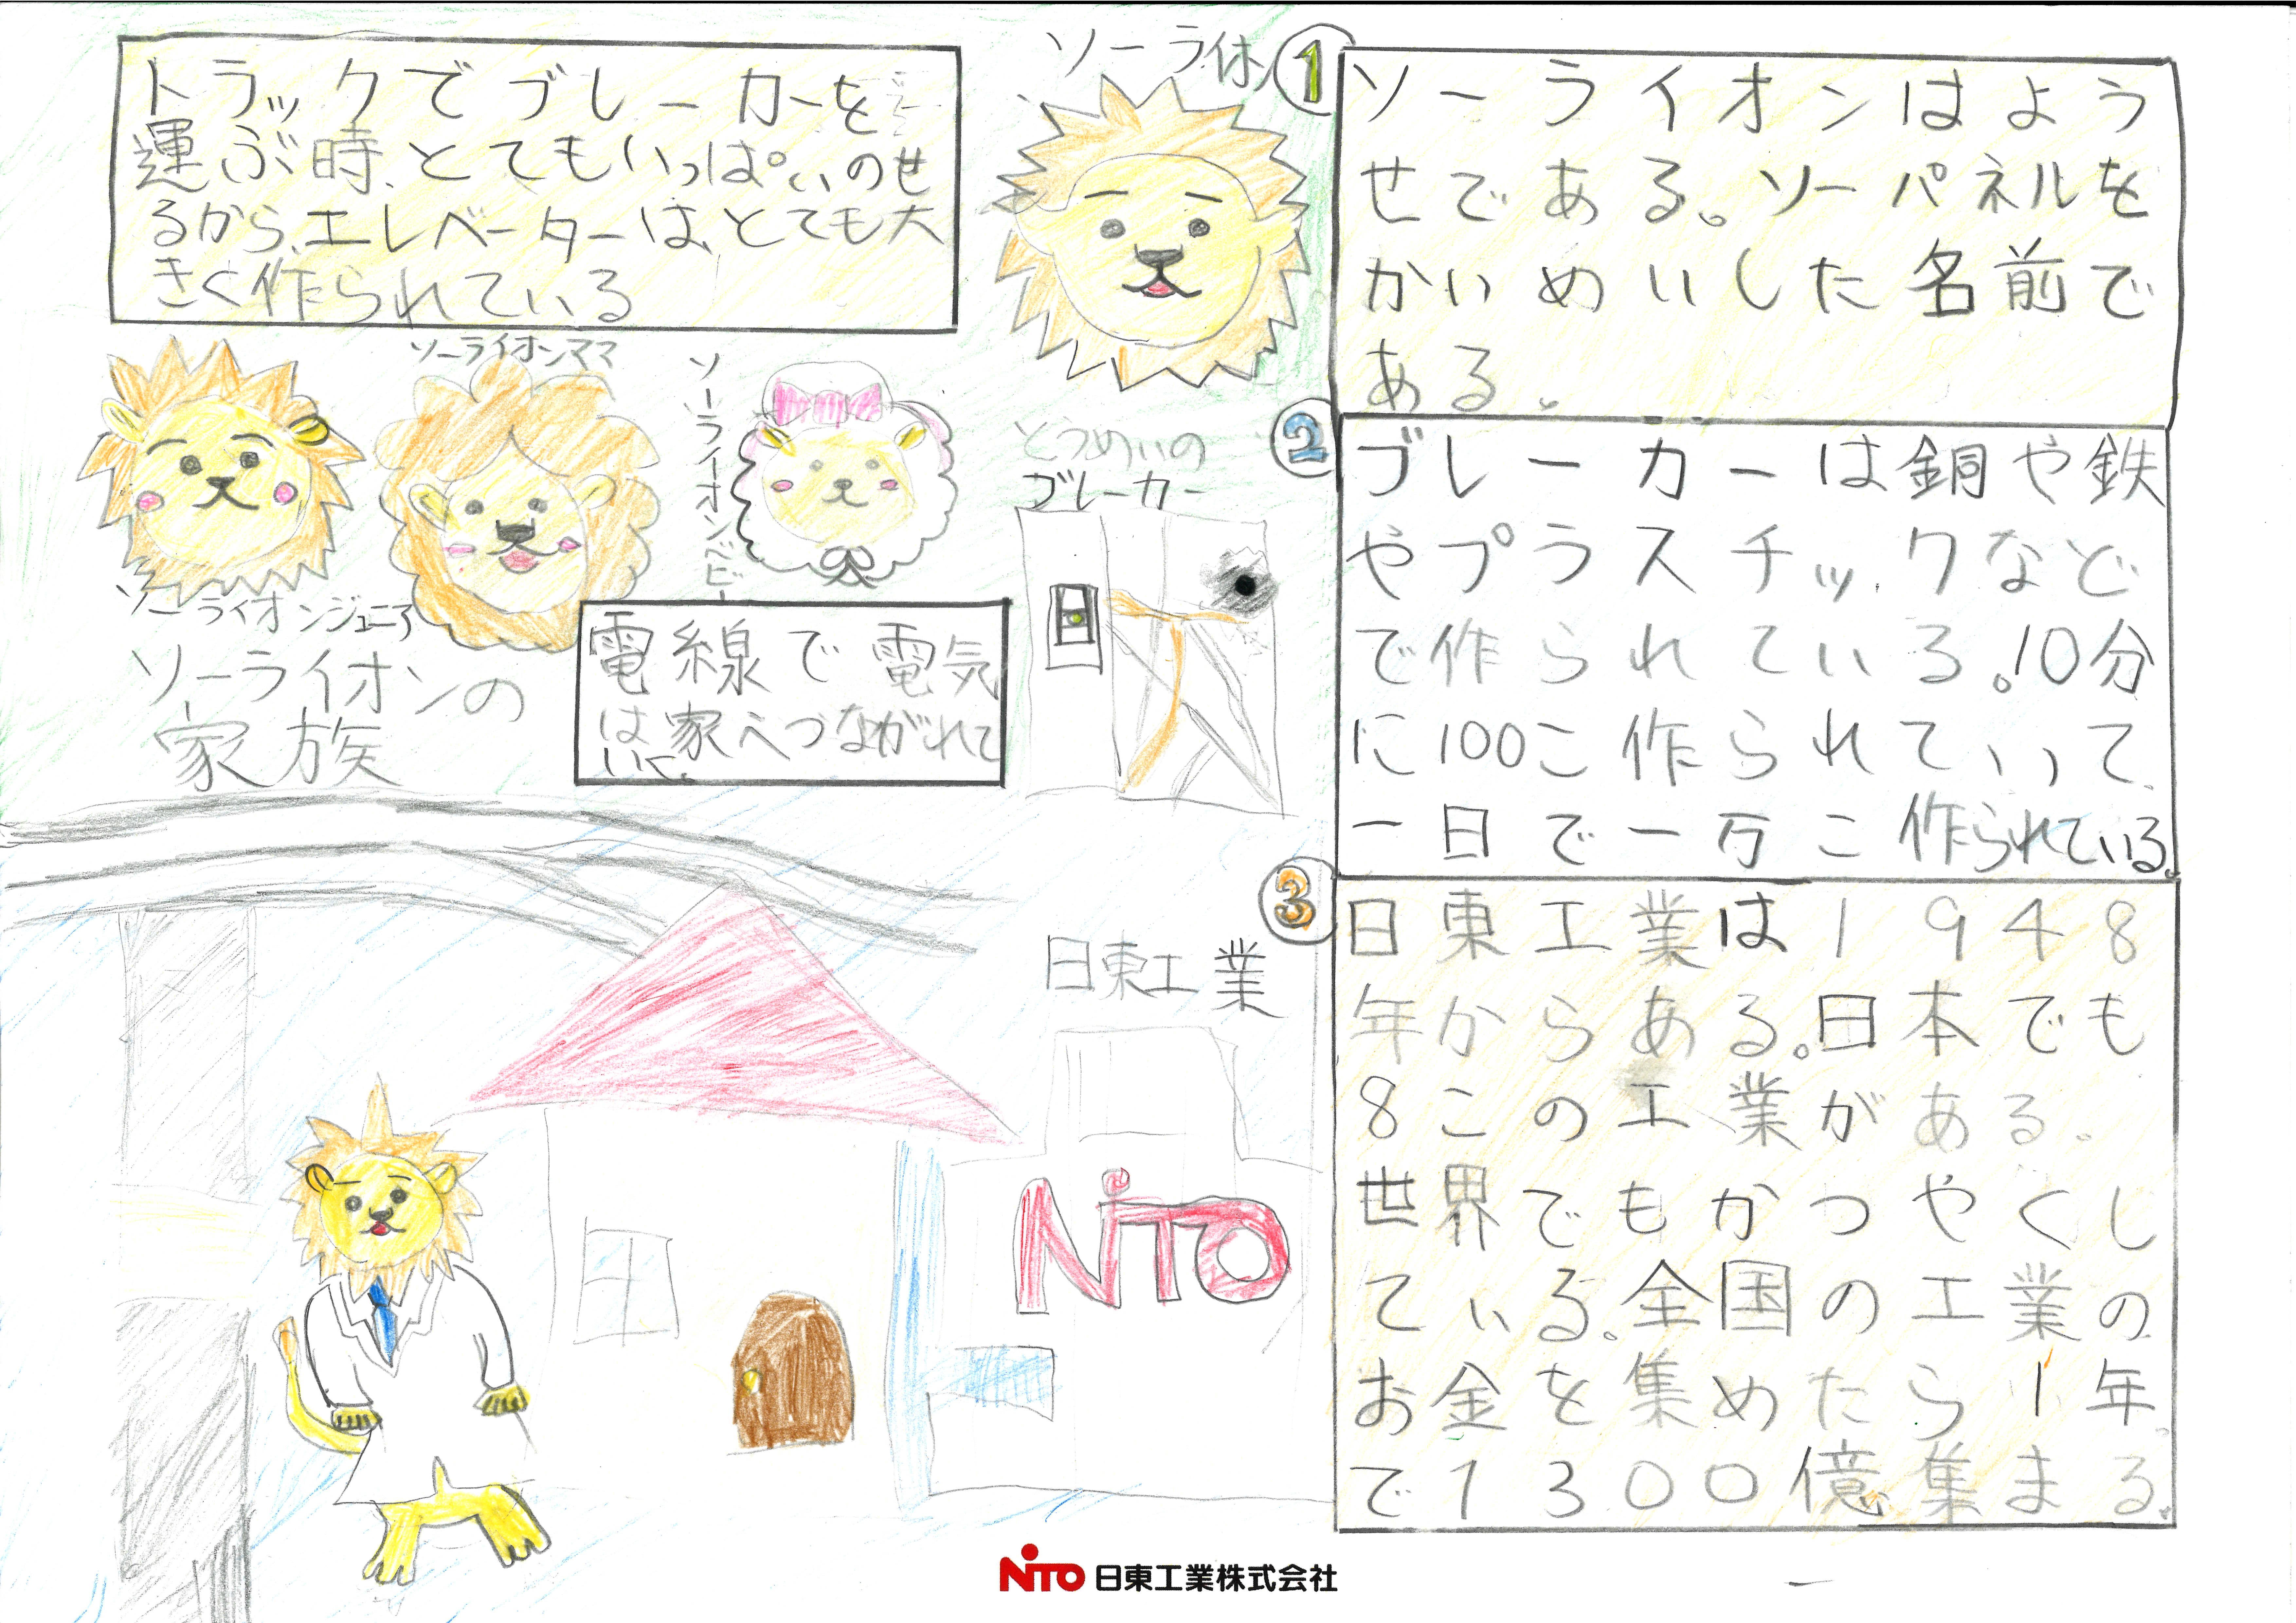 トラックでブレーカーを
運ぶ時、とてもいっぱいのせ
るから、エレベーターは、とても大
きく作られている
ソーライオンママ
ソーライオンベビー
ソーライオンジュニア
ソーライオンの
家族
電線で電気
は家へつながれて
いく。
①
ソーライオンはよう
せである。ソーパネルを
かいめいした名前で
ある。
とうめいの
ブレーカー
②
ブレーカーは銅や鉄
やプラスチックなど
で作られている。10分
に100こ作られていて、
一日で一万こ作られている。
日東工業
NiTO
③
日東工業は1948
年からある。日本でも
8この工業がある。
世界でもかつやくし
ている。全国の工業の
お金を集めたら1年
で1300億集まる。
NITO 日東工業株式会社